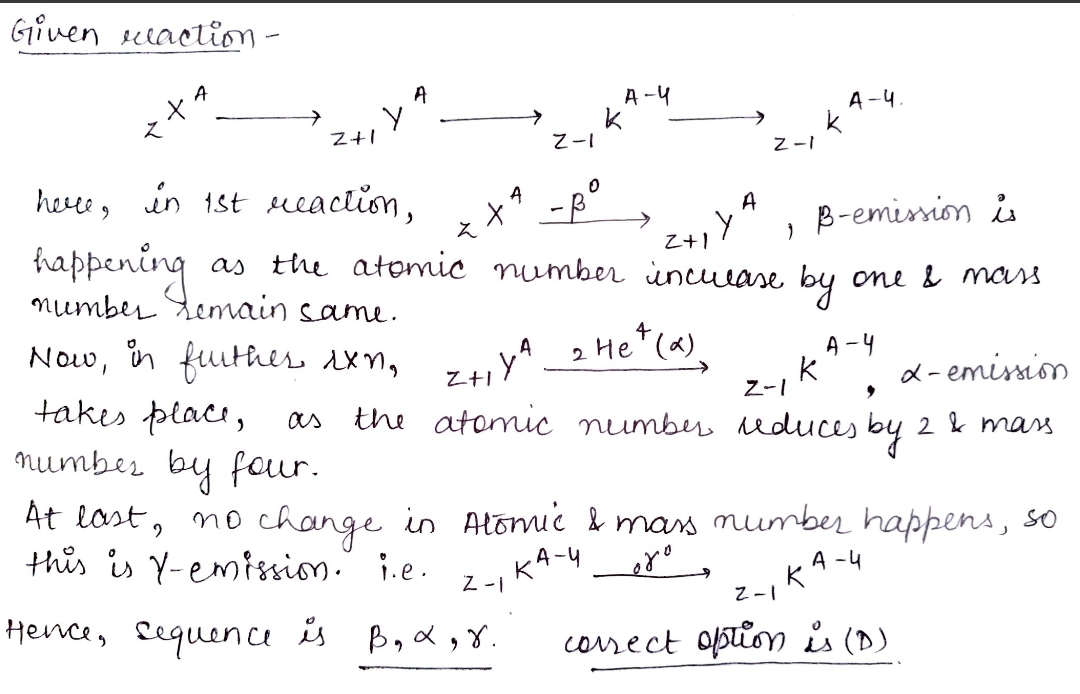 Given reaction -
zX^A ⟶ z+1Y^A ⟶ z-1K^A-4 ⟶ z-1K^A-4.
here, in 1st reaction, zX^A -β^0⟶ z+1Y^A, β-emission is
happening as the atomic number increase by one & mass
number remain same.
Now, in further rxn, z+1Y^A 2He^4(α)⟶ z-1K^A-4, α-emission
takes place, as the atomic number reduces by 2 & mass
number by four.
At last, no change in Atomic & mass number happens, so
this is γ-emission. i.e. z-1K^A-4 0γ^0⟶ z-1K^A-4
Hence, sequence is β, α, γ. correct option is (D).